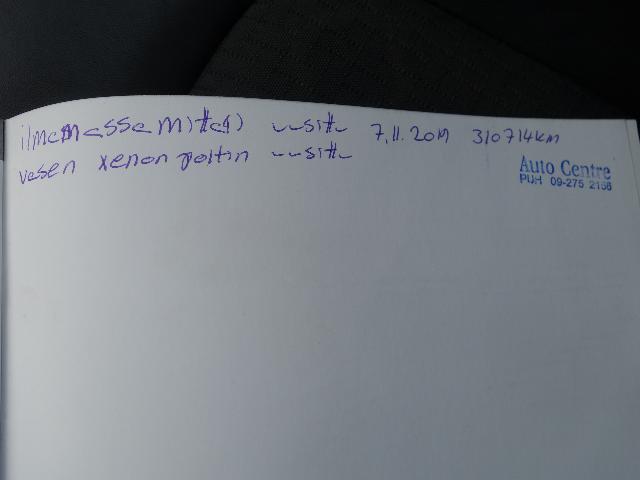 ilmamassamittari uusittu 7.11.2019 310714km
vasen xenon poltin uusittu
Auto Centre
PUH 09-275 2156